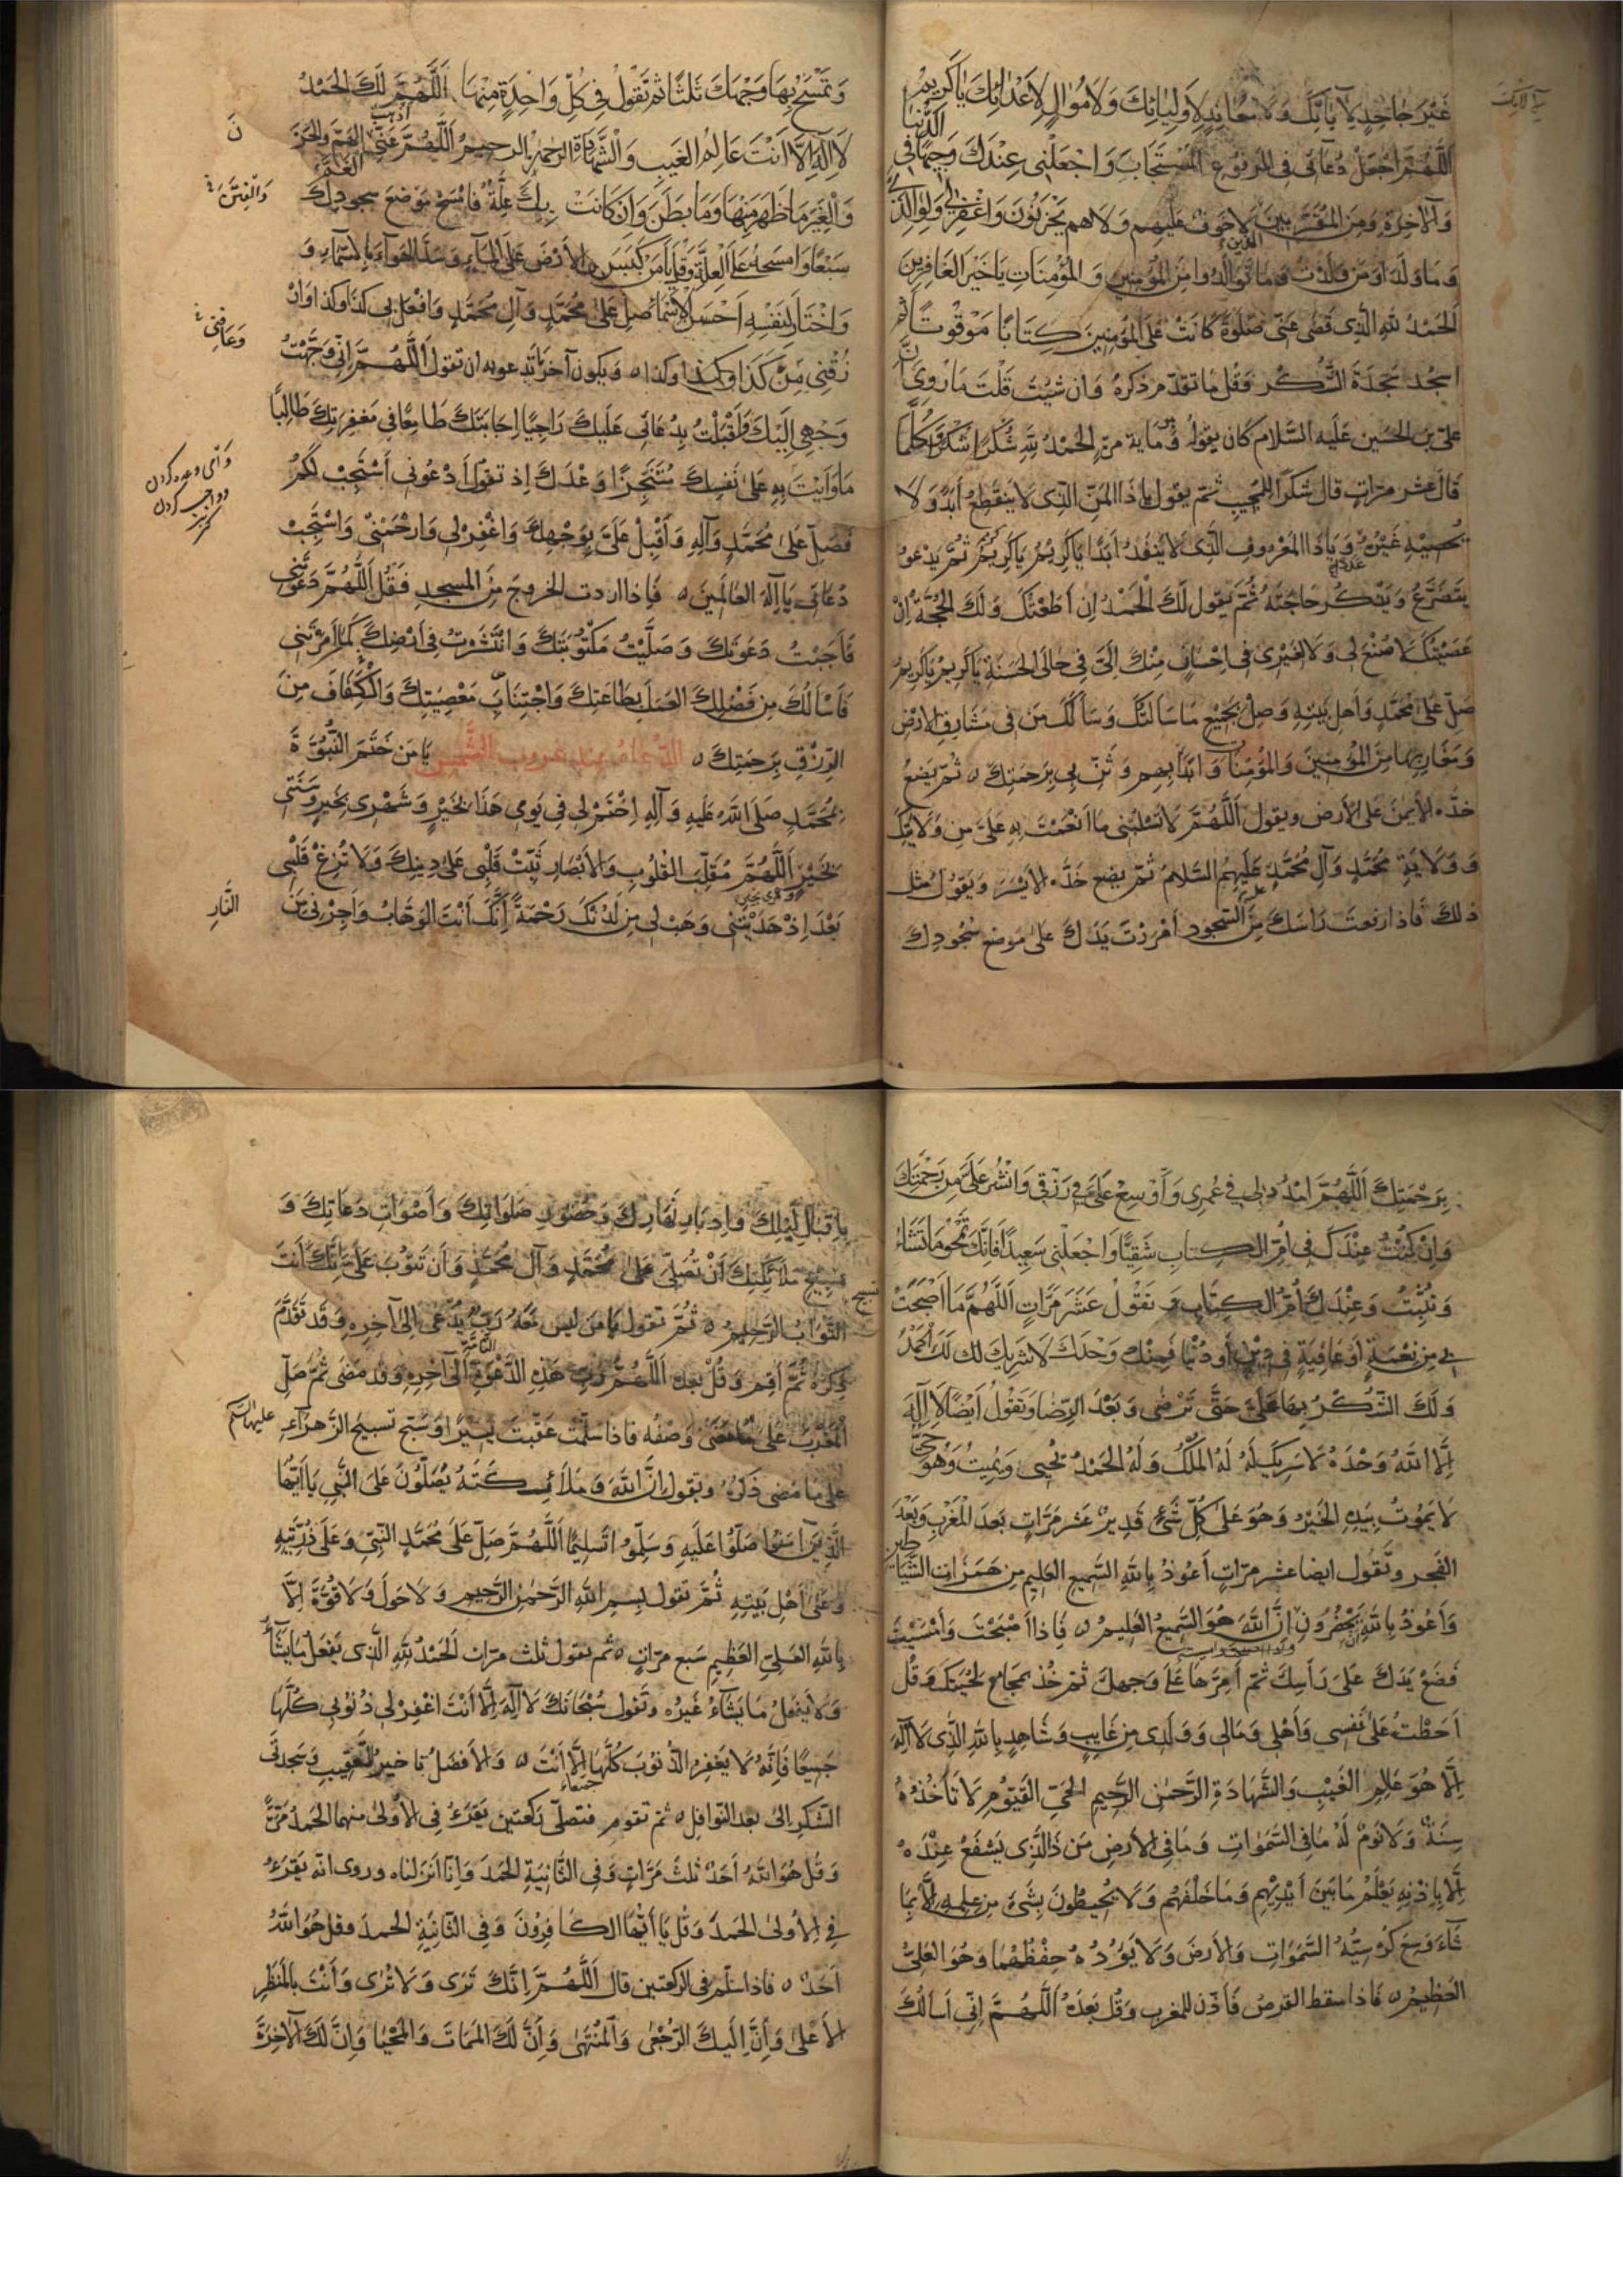 غَيْرَ جَاحِدٍ لِآيَاتِكَ وَلَا مُعَانِدٍ لِأَوْلِيَائِكَ وَلَا مُوَالٍ لِأَعْدَائِكَ يَا كَرِيمُ
اَللَّهُمَّ اجْعَلْ دُعَائِي فِي المَرْفُوعِ المُسْتَجَابِ وَاجْعَلْنِي عِنْدَكَ وَجِيهًا فِي الدُّنْيَا
وَالآخِرَةِ وَمِنَ المُقَرَّبِينَ لَا خَوْفٌ عَلَيْهِم وَلَاهم يَحْزَنُونَ وَاغْفِرْ لِي وَلِوَالِدَيَّ
وَمَا وَلَدَا وَمَن وَلَدْتُ وَمَا تَوَالَدُوا مِنَ المُؤْمِنِينَ وَ المُؤْمِنَاتِ يَا خَيْرَ الغَافِرِينَ
اَلحَمْدُ لِلَّهِ الَّذِي قَضَى عَنِّي صَلٰوةً كَانَتْ عَلَى المُؤْمِنِينَ كِتَابًا مَوْقُوتًا ثم
اسجُد سَجْدَةَ الشُّكْرِ وَقُل مَا تَقَدَّمَ ذِكرُهُ وَان شِئتَ قُلْتَ مَا رُوِيَ أنَّ
عَلِيَّ بنَ الحُسَينِ عَلَيهِ السَّلَام كَانَ يَقُولُ فيه مِاية مَرّةٍ الحَمْدُ لِلَّهِ شُكْرًا شُكْرًا وَكُلَّمَا
قَالَ عَشرَ مَرَّاتٍ قَالَ شُكْرًا لِلمُجِيبِ ثُمَّ يقول يَا ذَا المَنِّ الَّذِي لَا يَنقَطِعُ أَبَدًا وَلَا
يُحْصِيهِ غَيْرُهُ وَيَا ذَا المَعْرُوفِ الَّذِي لَا يَنْفَدُ أَبَدًا يَا كَرِيمُ يَا كَرِيمُ يَا كَرِيمُ ثُمَّ يَدْعُو
يَتَضَرَّعُ وَيَذْكُرُ حَاجَتَهُ ثُمَّ يَقُول لَكَ الحَمْدُ إِن أَطَعْتُكَ وَلَكَ الحُجَّةُ إِنْ
عَصَيْتُكَ لَا صُنْعَ لِي وَلَا لِغَيْرِي فِي إِحْسَانٍ مِنْكَ إِلَيَّ فِي حَالِي الحَسَنَةِ يَا كَرِيمُ يَا كَرِيمُ
صَلِّ عَلَى مُحَمَّدٍ وَأَهْلِ بَيْتِهِ وَصِلْ بِجَمِيعِ مَا سَأَلْتُكَ وَسَأَلَكَ مَن فِي مَشَارِقِ الأَرْضِ
وَمَغَارِبِهَا مِنَ المُؤْمِنِينَ وَالمُؤْمِنَاتِ وَابْدَأْ بِهِم وَثَنِّ بِي بِرَحْمَتِكَ ثُمَّ يَضَعُ
خَدَّه الأَيْمَنَ عَلَى الأَرْضِ وَيَقُولُ اَللَّهُمَّ لَا تَسْلُبْنِي مَا أَنْعَمْتَ بِهِ عَلَيَّ مِن وَلَايَتِكَ
وَوَلَايَةِ مُحَمَّدٍ وَآلِ مُحَمَّدٍ عَلَيْهِمُ السَّلَامُ ثُمَّ يَضَع خَدَّه الأَيْسَرَ وَيَقُولُ مثل
ذلِكَ فَاذا رفعتَ رَاسَكَ مِنَ السُّجُودِ أَمْرَرْتَ يَدَكَ عَلَى مَوضعِ سُجُودِكَ
وَتَمْسَحُ بِهَا وَجْهَكَ ثَلَثًا ثم تَقُولُ فِي كُلِّ وَاحِدَةٍ مِنْهَا اَللَّهُمَّ لَكَ الحَمْدُ
لَا إِلَهَ إِلَّا أَنْتَ عَالِمُ الغَيبِ وَالشَّهَادَةِ الرحمنُ الرحيمُ اَللَّهُمَّ أَذْهِبْ عَنِّي الهَمَّ وَالحَزَنَ
وَالغِيَرَ مَا ظَهَرَ مِنْهَا وَمَا بَطَنَ وَإِن كَانَتْ بِكَ عِلَّةٌ فَامْسَحْ مَوْضِعَ سُجُودِكَ
وَالْفِتَنَ
سَبْعًا وَامْسَحْهُ عَلَى العِلَّةِ وَقُل يَا مَنْ كَبَسَ الأَرْضَ عَلَى المَاءِ وَسَدَّ الهَوَاءَ بِالسَّمَاءِ وَ
وَاخْتَارَ لِنَفْسِهِ أَحْسَنَ الأَسْمَاءِ صَلِّ عَلَى مُحَمَّدٍ وَآلِ مُحَمَّدٍ وَافْعَلْ بِي كَذَا وَكَذَا وَارْ
وَعَافِنِي
زُقْنِي مِنْ كَذَا وَكَذَا وَيَكون آخر مَا تَدعو به ان تقول اَللَّهُمَّ إِنِّي وَجَّهْتُ
وَجْهِي إِلَيْكَ وَأَقْبَلْتُ بِدُعَائِي عَلَيْكَ رَاجِيًا إِجَابَتَكَ طَامِعًا فِي مَغْفِرَتِكَ طَالِبًا
مَا وَأَيْتَ بِهِ عَلَى نَفْسِكَ مُتَنَجِّزًا وَعْدَكَ إِذ تَقُولُ ادْعُونِي أَسْتَجِبْ لَكُمْ
فَصَلِّ عَلَى مُحَمَّدٍ وَآلِهِ وَأَقْبِلْ عَلَيَّ بِوَجْهِكَ وَاغْفِرْ لِي وَارْحَمْنِي وَاسْتَجِبْ
دُعَائِي يَا إِلَهَ العَالَمِينَ فَإِذا اردت الخروجَ مِنَ المسجدِ فَقُل اَللَّهُمَّ دَعَوْتَنِي
فَأَجَبْتُ دَعْوَتَكَ وَصَلَّيْتُ مَكْتُوبَتَكَ وَانْتَشَرْتُ فِي أَرْضِكَ كَمَا أَمَرْتَنِي
فَأَسْأَلُكَ مِن فَضْلِكَ العَمَلَ بِطَاعَتِكَ وَاجْتِنَابَ مَعْصِيَتِكَ وَالْكَفَافَ مِنَ
الرِّزْقِ بِرَحْمَتِكَ الدُّعَاءُ عند غروب الشَّمس يَا مَن خَتَمَ النُّبُوَّةَ
بِمُحَمَّدٍ صَلَّى اللَّهُ عَلَيهِ وَآلِهِ اِخْتِمْ لِي فِي يَومِي هَذَا بِخَيْرٍ وَشَهْرِي بِخَيْرٍ وَسَنَتِي
بِخَيْرٍ اَللَّهُمَّ مُقَلِّبَ القُلُوبِ وَالأَبْصَارِ ثَبِّتْ قَلْبِي عَلَى دِينِكَ وَلَا تُزِغْ قَلْبِي
بَعْدَ إِذْ هَدَيْتَنِي وَهَبْ لِي مِن لَدُنْكَ رَحْمَةً إِنَّكَ أَنْتَ الوَهَّابُ وَأَجِرْنِي مِنَ
النَّارِ
بِرَحْمَتِكَ اَللَّهُمَّ امْدُد لِي فِي عُمرِي وَأَوْسِعْ عَلَيَّ فِي رِزْقِي وَانْشُر عَلَيَّ مِن رَحْمَتِكَ
وَإِنْ كُنْتُ عِنْدَكَ فِي أُمِّ الكِتَابِ شَقِيًّا وَاجْعَلْنِي سَعِيدًا فَإِنَّكَ تَمْحُو مَا تَشَاءُ
وَتُثْبِتُ وَعِنْدَكَ أُمُّ الكِتَابِ وَ تَقُولُ عَشَرَ مَرَّاتٍ اَللَّهُمَّ مَا أَصْبَحَتْ
بِي مِن نِعْمَةٍ أَو عَافِيَةٍ فِي دِينٍ أَو دُنْيَا فَمِنْكَ وَحْدَكَ لَا شَرِيكَ لَكَ لَكَ الحَمْدُ
وَلَكَ الشُّكْرُ بِهَا عَلَيَّ حَتَّى تَرْضَى وَبَعْدَ الرِّضَا وَتَقُولُ أَيْضًا لَا إِلَهَ
إِلَّا اللَّهُ وَحْدَهُ لَا شَرِيكَ لَهُ لَهُ المُلْكُ وَلَهُ الحَمْدُ يُحْيِي وَيُمِيتُ وَهُوَ حَيٌّ
لَا يَمُوتُ بِيَدِهِ الخَيْرُ وَهُوَ عَلَى كُلِّ شَيْءٍ قَدِيرٌ عَشر مَرَّاتٍ بَعدَ المَغْرِبِ وَبَعْدَ
الفَجرِ وَتَقُول ايضا عشر مرّاتٍ أَعُوذُ بِاللَّهِ السَّمِيعِ العَلِيمِ مِن هَمَزَاتِ الشَّيَاطين
وَأَعُوذُ بِاللَّهِ أَن يَحْضُرُونِ إِنَّ اللَّهَ هُوَ السَّمِيعُ العَلِيمُ فَإِذا أَصْبَحْتَ وَأَمْسَيْتَ
فَضَعْ يَدَكَ عَلَى رَأسِكَ ثُمّ أَمِرَّهَا عَلَى وَجهِكَ ثُمّ خُذ بِمَجَامِعِ لِحْيَتِكَ وَقُل
أَحَطْتُ عَلَى نَفْسِي وَأَهْلِي وَمَالِي وَوَلَدِي مِن غَايِبٍ وَشَاهِدٍ بِاللَّهِ الَّذِي لَا إِلَهَ
إِلَّا هُوَ عَالِمِ الغَيْبِ وَالشَّهَادَةِ الرَّحمنِ الرَّحِيمِ الحَيِّ القَيُّومِ لَا تَأْخُذُهُ
سِنَةٌ وَلَا نَوْمٌ لَهُ مَا فِي السَّمَوَاتِ وَمَا فِي الأَرضِ مَن ذَا الَّذِي يَشْفَعُ عِنْدَهُ
إِلَّا بِإِذْنِهِ يَعْلَمُ مَا بَيْنَ أَيْدِيهِم وَمَا خَلْفَهُم وَلَا يُحِيطُونَ بِشَيْءٍ مِن عِلمِهِ إِلَّا بِمَا
شَاءَ وَسِعَ كُرْسِيُّهُ السَّمَوَاتِ وَالأَرضَ وَلَا يَؤُدُهُ حِفْظُهُمَا وَهُوَ العَلِيُّ
العَظِيمُ فَاذا سقط القرصُ فَأَذِّن لِلمغربِ وَقُل بَعدَهُ اَللَّهُمَّ إِنِّي أَسْأَلُكَ
بِإِقْبَالِ لَيْلِكَ وَإِدْبَارِ نَهَارِكَ وَحُضُورِ صَلَوَاتِكَ وَأَصْوَاتِ دُعَاتِكَ وَ
تَسْبِيحِ مَلَائِكَتِكَ أَنْ تُصَلِّيَ عَلَى مُحَمَّدٍ وَآلِ مُحَمَّدٍ وَأَن تَتُوبَ عَلَيَّ إِنَّكَ أَنتَ
التَّوَّابُ الرَّحِيمُ ثُمَّ تَقول يَا مَن لَيسَ مَعَهُ رَبٌّ يُدْعَى إِلَى آخِرِهِ وَقَد تَقَدَّمَ
ذِكرُهُ ثُمَّ أَقِم وَقُلْ بَعدَهُ اَللَّهُمَّ رَبَّ هَذِهِ الدَّعْوَةِ التَّامَّةِ إِلَى آخِرِهِ وَقَد مَضَى ثُمَّ صَلِّ
المَغْرِبَ عَلَى مَا مَضَى وَصْفُه فَاذا سَلَّمْتَ عَقَّبتَ يَسِيرًا وَسَبِّح تسبيحَ الزَّهراءِ عليها السلم
عَلَى مَا مَضى ذِكرُهُ وتقول إِنَّ اللَّهَ وَمَلَائِكَتَهُ يُصَلُّونَ عَلَى النَّبِيِّ يَا أَيُّهَا
الَّذِينَ آمَنُوا صَلُّوا عَلَيهِ وَسَلِّمُوا تَسْلِيمًا اَللَّهُمَّ صَلِّ عَلَى مُحَمَّدٍ النَّبِيِّ وَعَلَى ذُرِّيَّتِهِ
وَعَلَى أَهْلِ بَيْتِهِ ثُمَّ تَقُول بِسمِ اللَّهِ الرَّحمنِ الرَّحِيمِ وَلَا حَولَ وَلَا قُوَّةَ إِلَّا
بِاللَّهِ العَلِيِّ العَظِيمِ سَبع مرّاتٍ ثم يقول ثلث مَرّات اَلحَمْدُ لِلَّهِ الَّذِي يَفعَلُ مَا يَشَاءُ
وَلَا يَفعَلُ مَا يَشَاءُ غَيْرُه وتَقول سُبْحَانَكَ لَا إِلَهَ إِلَّا أَنْتَ اغْفِرْ لِي ذُنُوبِي كُلَّهَا
جَمِيعًا فَإِنَّهُ لَا يَغْفِرُ الذُّنُوبَ كُلَّهَا إِلَّا أَنْتَ وَالأفضَلُ تَاخيرُ التَّعقيبِ وَسَجدتَي
الشّكرِ الى بعد النّوافِل ثمّ تَقومُ فتصلّي رَكْعَتَينِ يَقرَءُ فِي الأُولَى منهما الحَمدَ مَرَّةً
وَقُل هُوَ اللَّهُ أَحَدٌ ثلثَ مَرَّاتٍ وَفِي الثَّانِيَةِ الحَمدَ وَإِنَّا أَنزَلنَاه وروى انّه يَقرَءُ
فِي الأُولَى الحَمدَ وَقُل يَا أَيُّهَا الكَافِرُونَ وَفِي الثَّانِيَةِ الحَمدَ وَقل هُوَ اللَّهُ
أَحَدٌ فاذا سَلّم فِي الرّكعتينِ قَالَ اَللَّهُمَّ إِنَّكَ تَرَى وَلَا تُرَى وَأَنْتَ بِالمَنْظَرِ
الأَعْلَى وَأَنَّ إِلَيكَ الرُّجْعَى وَالْمُنْتَهَى وَأَنَّ لَكَ المَمَاتَ وَالمَحْيَا وَإِنَّ لَكَ الآخِرَةَ